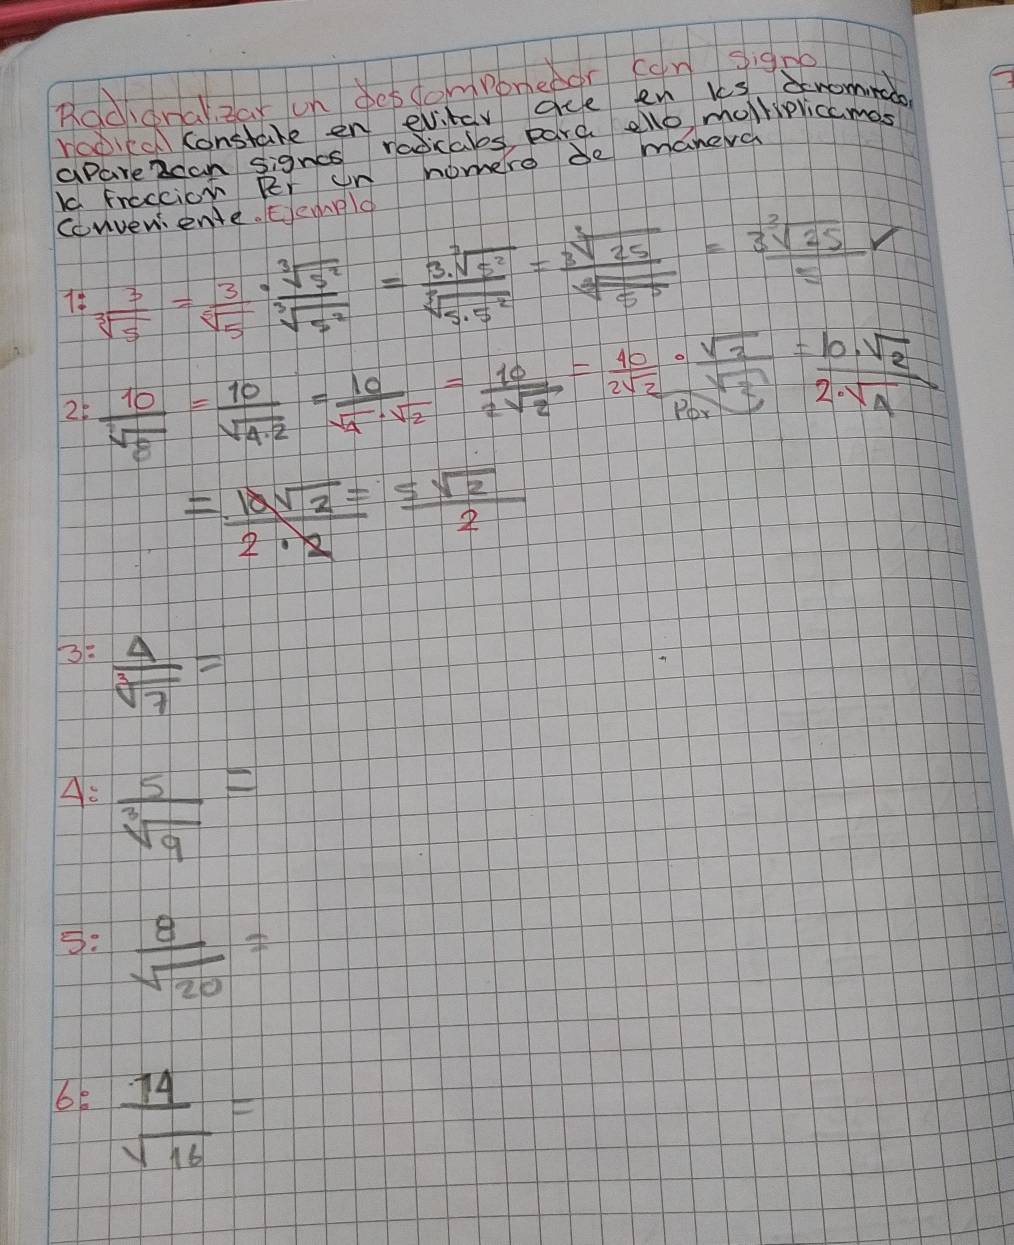 Radignalizar un descomponedor con signo
radical constate en evitar que en los denominador
aparezcan signos radicales, para ello moltiplicamos
la fraccion Por un nomero de manera
conveniente. Ejemplo
1: 3/∛5 = 3/∛5 · ∛5²/∛5² = 3.∛5²/∛5.5² = 3∛25/∛5³ = 3∛25/5 ✓
2: 10/√8 = 10/√4.2 = 10/√4 · √2 = 10/2√2 = 10/2√2 · √2/√2 = 10.√2/2.√4
Por
= 10√2/2 · 2 = 5√2/2
3: 4/∛7 =
4: 5/∛9 =
5: 8/√20 =
6: 14/√16 =